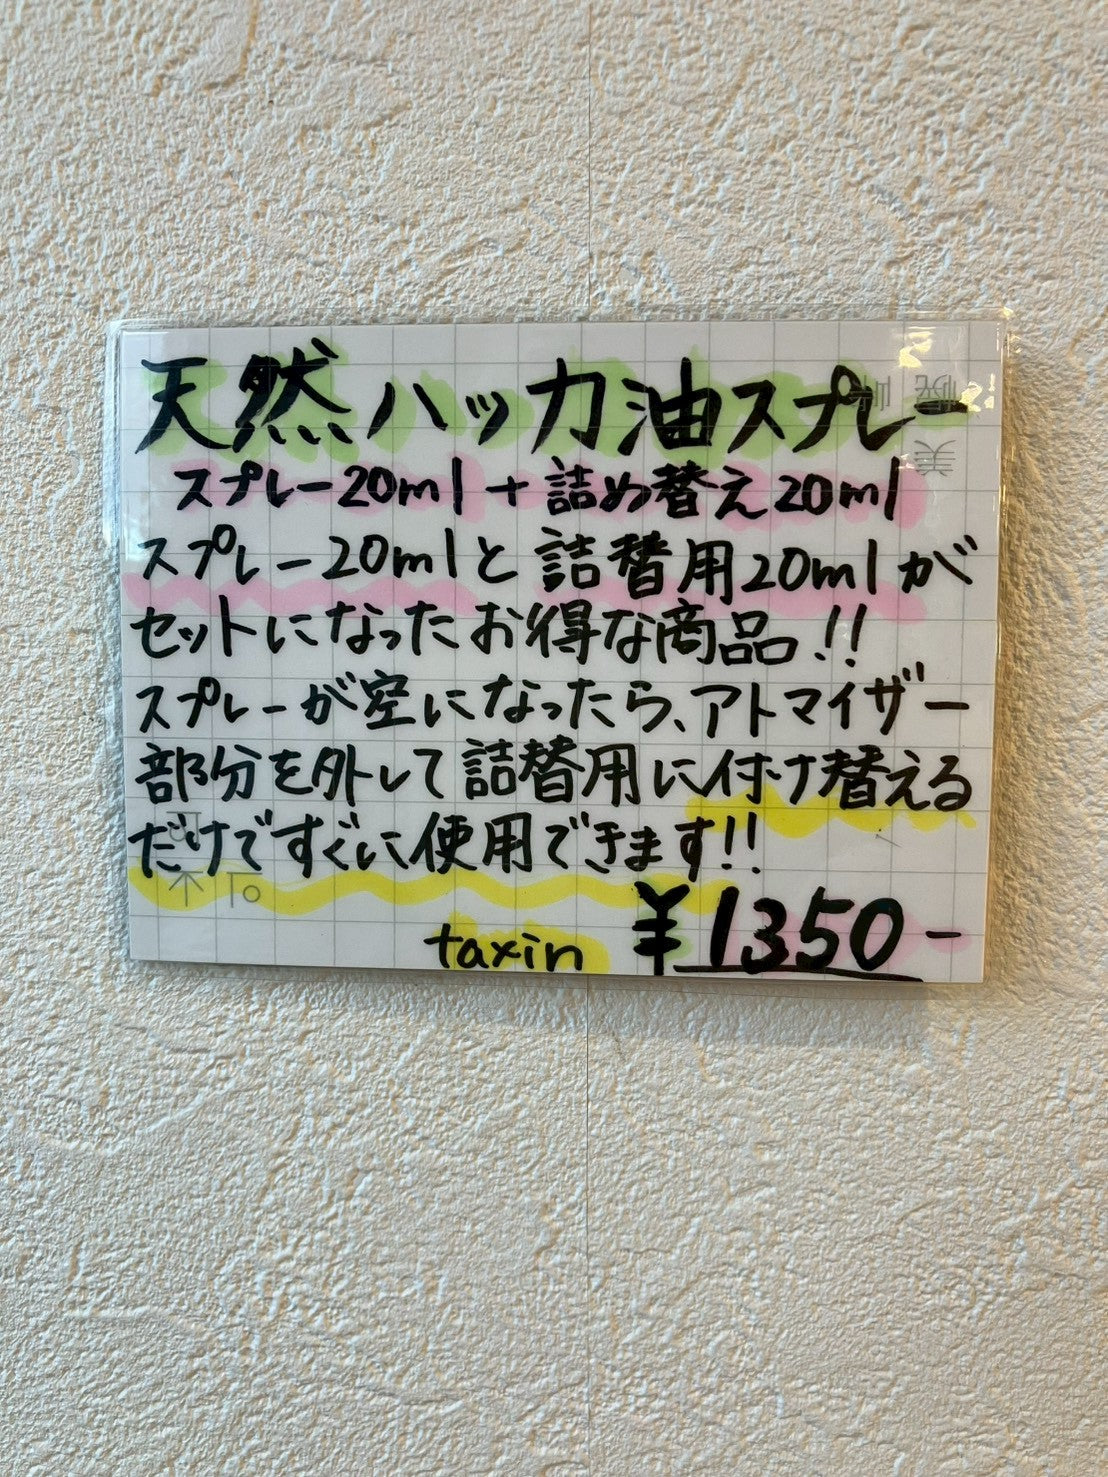 天然ハッカ油スプレー
スプレー20ml+詰め替え20ml
スプレー20mlと詰替用20mlが
セットになったお得な商品!!
スプレーが空になったら、アトマイザー
部分を外して詰替用に付け替える
だけですぐに使用できます!!
taxin ¥1350-